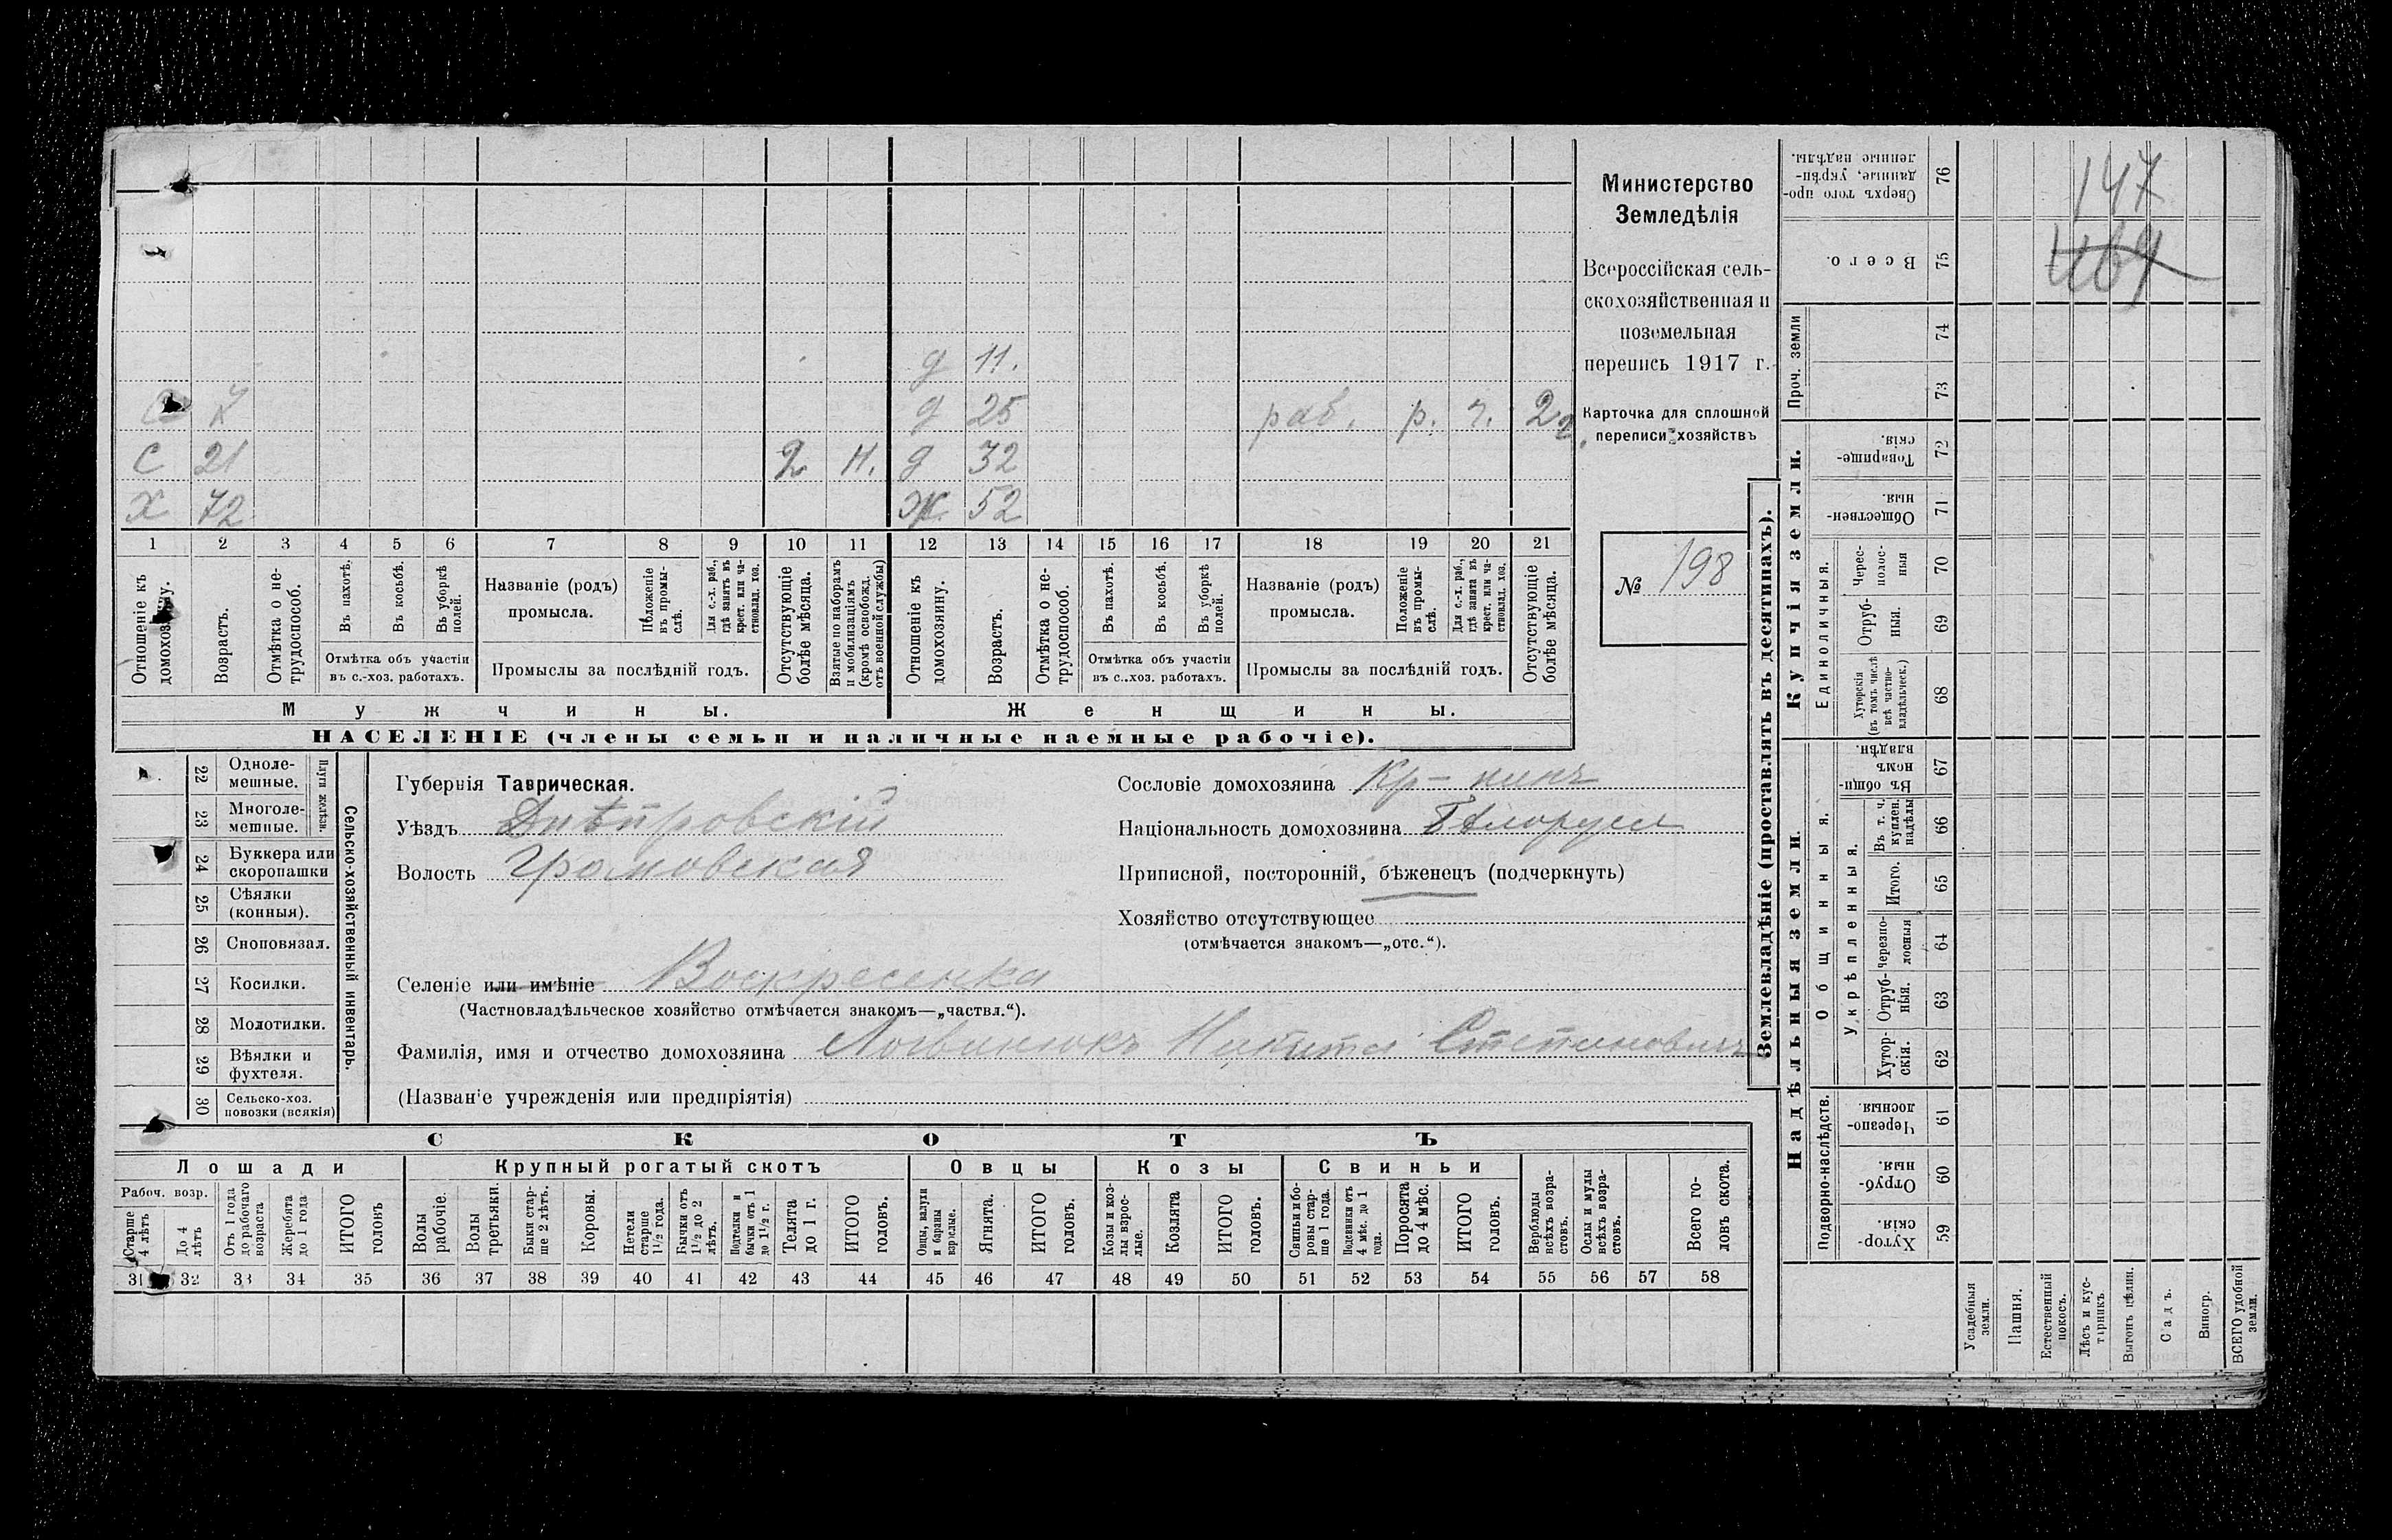 д 11.
с 7 д 25 раб. р. ч. 2
с 21 2 Н. д 32
х 72 ж 52
1 2 3 4 5 6 7 8 9 10 11 12 13 14 15 16 17 18 19 20 21
Отношеніе къ домохозяину.
Возрастъ.
Отмѣтка о не-трудоспособ.
Въ пахотѣ.
Въ косьбѣ.
Въ уборкѣ полей.
Отмѣтка объ участіи въ с.-хоз. работахъ.
Названіе (родъ) промысла.
Положеніе въ промы-слѣ.
Для с.-х. раб., гдѣ занятъ въ крест. или ча-стновлад. хоз.
Промыслы за послѣдній годъ.
Отсутствующіе болѣе мѣсяца.
Взятые по наборамъ и мобилизаціямъ (кромѣ освобожд. отъ военной службы)
Отношеніе къ домохозяину.
Возрастъ.
Отмѣтка о не-трудоспособ.
Въ пахотѣ.
Въ косьбѣ.
Въ уборкѣ полей.
Отмѣтка объ участіи въ с..хоз. работахъ.
Названіе (родъ) промысла.
Положеніе въ промы-слѣ.
Для с.-х. раб., гдѣ занята въ крест. или ча-стновлад. хоз.
Промыслы за послѣдній годъ.
Отсутствующіе болѣе мѣсяца.
Мужчины. Женщины.
НАСЕЛЕНІЕ (члены семьи и наличные наемные рабочіе).
Министерство
Земледѣлія
Всероссійская сель-
скохозяйственная и
поземельная
перепись 1917 г.
Карточка для сплошной
переписи хозяйствъ
№ 198
22 Одноле-мешные.
23 Многоле-мешные.
Плуги желѣзн.
24 Буккера или скоропашки
25 Сѣялки (конныя).
26 Сноповязал.
27 Косилки.
28 Молотилки.
29 Вѣялки и фухтеля.
30 Сельско-хоз. повозки (всякія)
Сельско-хозяйственный инвентарь.
Губернія Таврическая.
Уѣздъ Днѣпровскій
Волость Громовская
Селеніе или имѣніе Воскресенка
(Частновладѣльческое хозяйство отмѣчается знакомъ—„частвл.“).
Фамилія, имя и отчество домохозяина Логвинюкъ Никита Степановичъ
(Названіе учрежденія или предпріятія)
Сословіе домохозяина Кр-нинъ
Національность домохозяина Бѣлоруссъ
Приписной, посторонній, бѣженецъ (подчеркнуть)
Хозяйство отсутствующее
(отмѣчается знакомъ—„отс.“).
СКОТЪ
Лошади Крупный рогатый скотъ Овцы Козы Свиньи
Рабоч. возр.
Старше 4 лѣтъ
До 4 лѣтъ
Отъ 1 года до рабочаго возраста
Жеребята до 1 года
ИТОГО головъ
Волы рабочіе.
Волы третьяки.
Быки стар-ше 2 лѣтъ.
Коровы.
Нетели старше 1½ года.
Бычки отъ 1½ до 2 лѣтъ.
Подтелки и бычки отъ 1 до 1½ г.
Телята до 1 г.
ИТОГО головъ.
Овцы, валухи и бараны взрослые.
Ягнята.
ИТОГО головъ.
Козы и коз-лы взрос-лые.
Козлята
ИТОГО головъ.
Свиньи и бо-ровы стар-ше 1 года.
Подсвинки отъ 4 мѣс. до 1 года.
Поросята до 4 мѣс.
ИТОГО головъ.
Верблюды всѣхъ возра-стовъ.
Ослы и мулы всѣхъ возра-стовъ.
Всего го-ловъ скота.
31 32 33 34 35 36 37 38 39 40 41 42 43 44 45 46 47 48 49 50 51 52 53 54 55 56 57 58
Землевладѣніе (проставлять въ десятинахъ).
Купчія земли.
Надѣльныя земли.
Сверхъ того про-данные, укрѣп-ленные надѣлы. 76
Всего. 75
Проч. земли 74 73
Товарище-скія. 72
Обществен-ныя. 71
Единоличныя.
Черес-полос-ныя 70
Отруб-ныя. 69
Хуторскія (въ томъ числѣ всѣ частно-владѣльческ.) 68
Общинныя.
Въ общи-номъ владѣн. 67
Укрѣпленныя.
Въ т. ч. куплен. надѣлы 66
Итого. 65
Черезпо-лосныя 64
Отруб-ныя. 63
Хутор-скія. 62
Подворно-наслѣдств.
Черезпо-лосныя. 61
Отруб-ныя. 60
Хутор-скія. 59
Усадебныя земли.
Пашня.
Естественный покосъ.
Лѣсъ и кус-тарникъ
Выгонъ цѣлин.
Садъ.
Виногр.
ВСЕГО удобной земли.
147